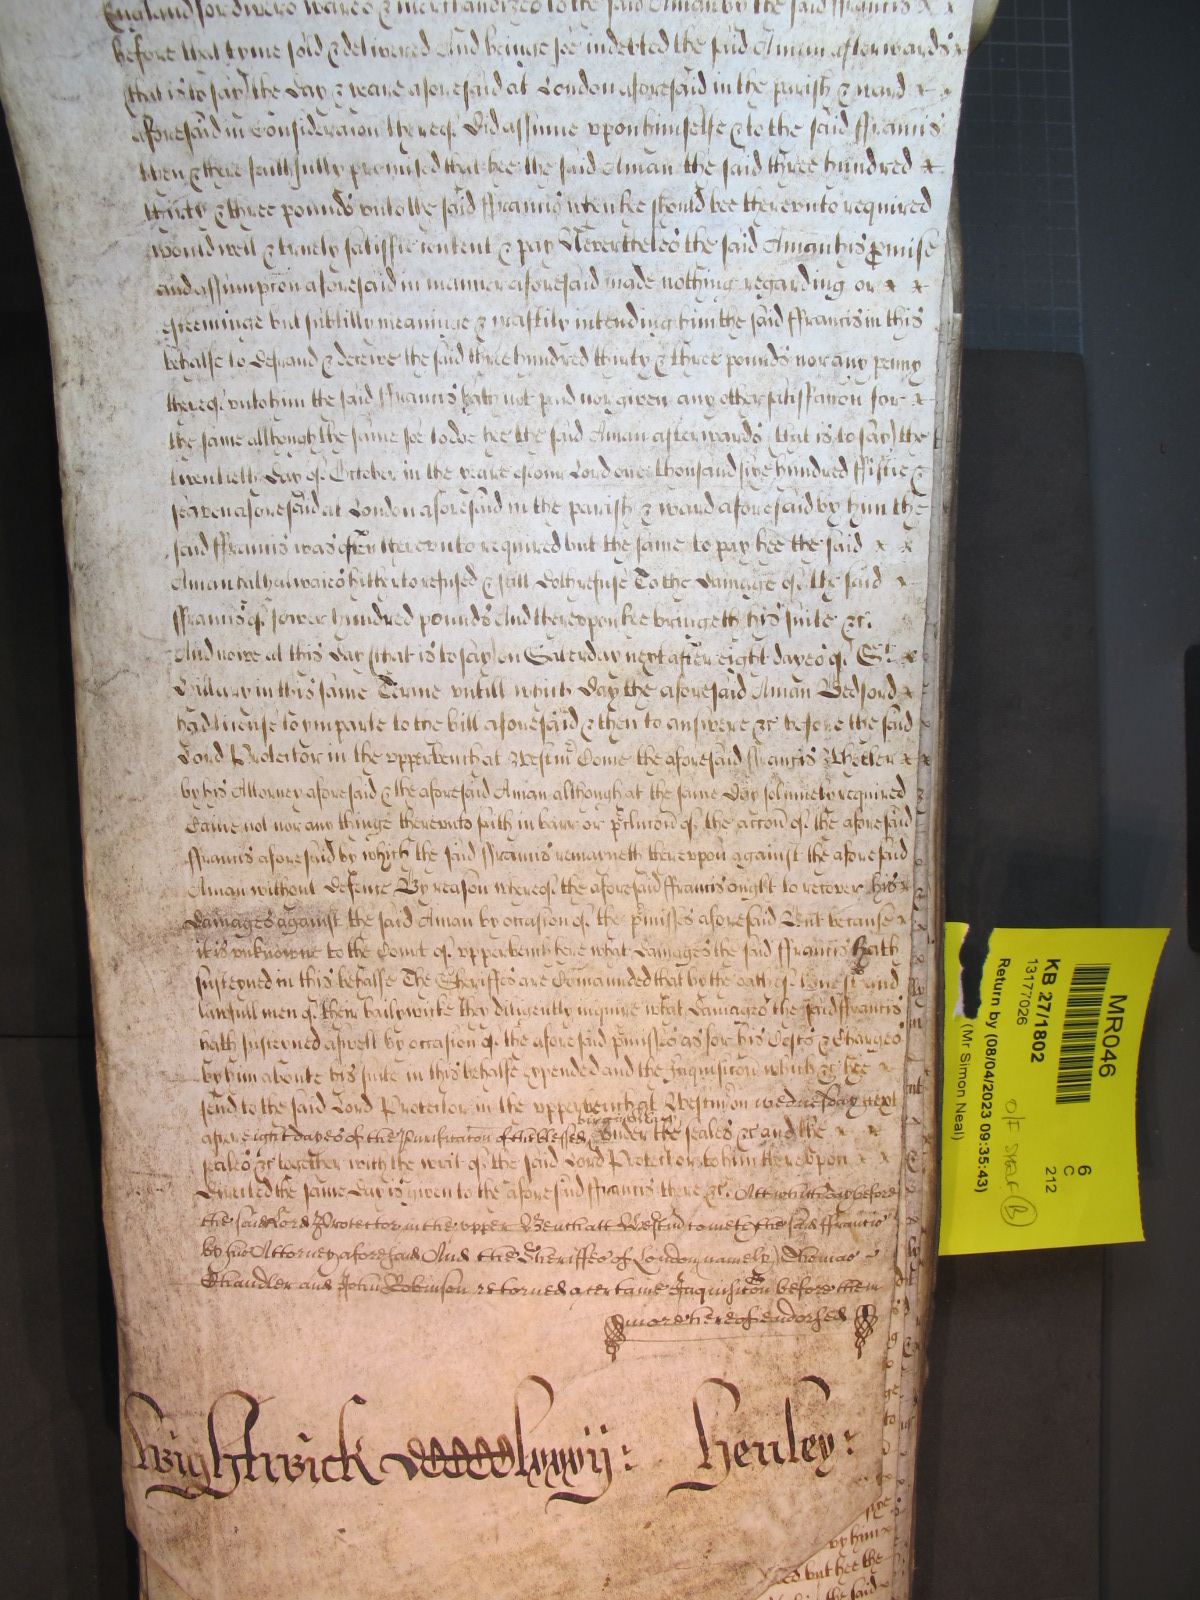 England for divers wares & merchandizes to the said Aman by the said ffrancis x x
before that tyme sold & delivered And beinge soe indebted the said Aman afterwards x
(that is to say) the day & yeare aforesaid at London aforesaid in the parish & ward x x
aforesaid in consideracon thereof did assume upon himselfe & to the said ffrancis
then & there faithfully promised that hee the said Aman the said three hundred x
thirty & three pounds unto the said ffrancis when hee should bee thereunto required
would well & truely satisfie content & pay Neverthelesse the said Aman his pmise
and assumpcon aforesaid in manner aforesaid made nothing regarding or x x
esteeminge but subtilly meaninge & craftily intending him the said ffrancis in this
behalfe to defraud & deceive the said three hundred thirty & three pounds nor any penny
thereof unto him the said ffrancis hath not paid nor given any other satisfaccon for x
the same although the same soe to doe hee the said Aman afterwards (that is to say) the
twentieth day of October in the yeare of our Lord one thousand sixe hundred ffiftie &
seaven aforesaid at London aforesaid in the parish & ward aforesaid by him the
said ffrancis was often thereunto required but the same to pay hee the said x x
Aman hath alwaies hitherto refused & still doth refuse To the damage of the said x
ffrancis of fower hundred pounds And thereupon hee bringeth his suite &c.
And nowe at this day (that is to say) on Saterday next after eight dayes of St. x
Hillary in this same Terme untill which day the aforesaid Aman Bedford x
had license to imparle to the bill aforesaid & then to answere &c before the said
Lord Protector in the upper bench at Westmr Come the aforesaid ffrancis Wheeler x x
by his Attorney aforesaid & the aforesaid Aman although at the same day solemnely required
Came not nor any thinge thereunto saith in barr or pclucon of the accon of the aforesaid
ffrancis aforesaid by which the said ffrancis remayneth thereupon against the aforesaid
Aman without defence By reason whereof the aforesaid ffrancis ought to recover his
damages against the said Aman by occasion of the pmisses aforesaid But because x
it is unknowne to the Court of upper bench here what damages the said ffrancis hath
susteyned in this behalfe The Sheriffes are Comaunded that by the oath of twelve good and
lawfull men of their bailywicke they diligently inquire what damages the said ffrancis
hath susteyned aswell by occasion of the aforesaid pmisses as for his Costs & Charges
by him aboute his suite in this behalfe expended and the Inquisicon which &c hee x
send to the said Lord Protector in the upper bench at Westmr on wednesday next
after eight dayes of the Purificacon of the blessed virgin Mary under the seales &c and the x x
seales &c together with the writ of the said Lord Protector to him thereupon x x
directed the same day is given to the aforesaid ffrancis there &c. Att which day before
the said Lord Protector in the upper Bench att Westmr cometh the said ffrancis
by his Attorney aforesaid And the Sheriffes of London namely Thomas
Chandler and John Robinson retorned a certaine Inquisicon before them
more hereof endorsed
Wightwick lxxxij: Henley:
MR046
KB 27/1802
13177026
Return by (08/04/2023 09:35:43)
(Mr Simon Neal)
6
C
212
O/F SHELF B
by him
but hee the
the said